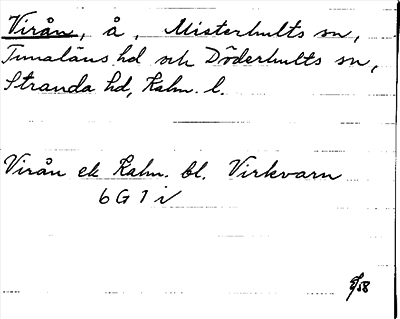 Virån, å, Misterhults sn,
Tunaläns hd och Döderhults sn,
Stranda hd, Kalm. l.
Virån ek Kalm. bl. Virkvarn
6 G 7 i